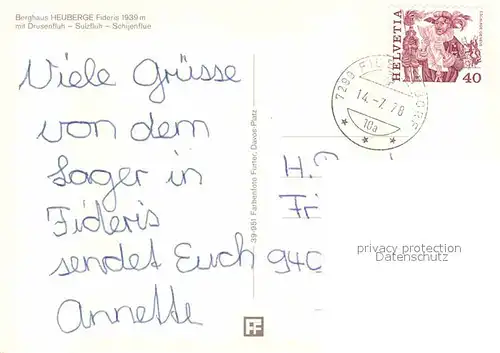 Berghaus HEUBERGE Fideris 1939 m
mit Drusenfluh – Sulzfluh – Schijenflue
Viele Grüsse
von dem
Lager in
Fideris
sendet Euch
Annette
39-981 Farbenfoto Furter, Davos-Platz
HELVETIA
40
7299 FI
14.-7.78
10a
H.
Fri
940
privacy protection
Datenschutz
FF